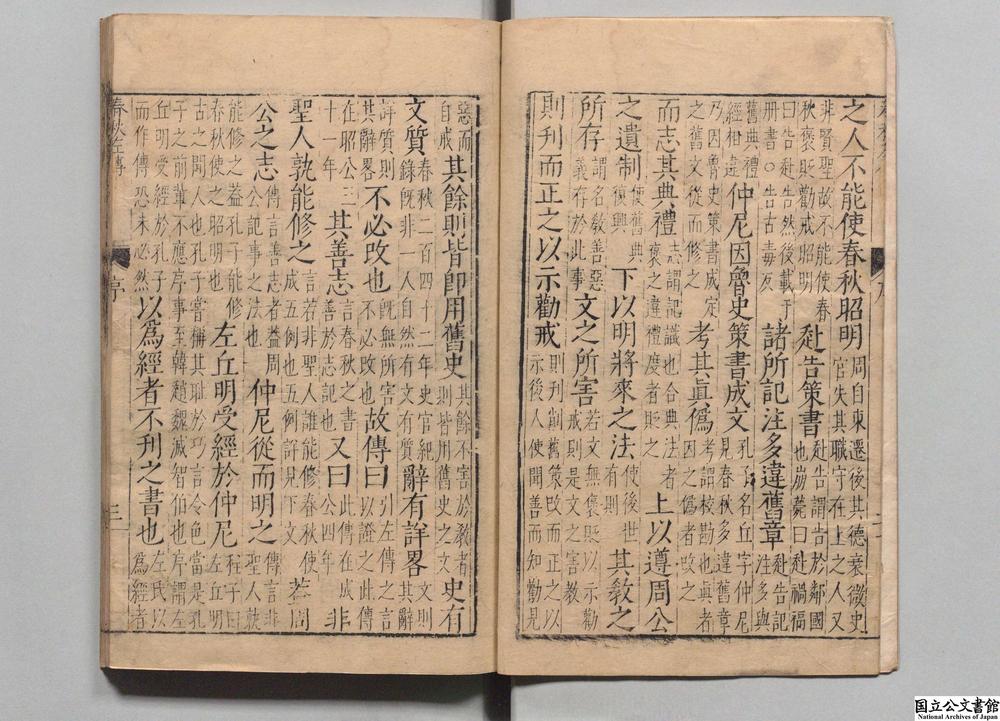 之人不能使春秋昭明周自東遷後其德衰微史官失其職守在上之人又
非賢聖故不能使春秋褒貶勸戒昭明赴告策書赴告謂告於鄰國也崩薨曰赴禍福
曰告赴告然後載于册書○告古毒反諸所記注多違舊章赴告記注多與
舊典禮經相違仲尼因魯史策書成文孔子名丘字仲尼見春秋多違舊章
乃因魯史策書成定之舊文從而修之考其眞僞考謂校勘也眞者因之僞者改之
而志其典禮志謂記識也合典法者褒之違禮度者貶之上以遵周公
之遺制使舊典復興下以明將來之法使後世有則其教之
所存謂名教善惡義存於此事文之所害若文無褒貶以示勸戒則是文之害教
則刊而正之以示勸戒則刊削而正之以示後人使聞善而知勸見
惡而自戒其餘則皆卽用舊史其餘不害於教者則皆用舊史之文史有
文質春秋二百四十二年史官紀錄旣非一人自然有文有質辭有詳畧文則其辭
詳質則其辭畧不必改也旣無所害不必改也故傳曰引左傳之言以證之此傳
在昭公三十一年其善志言春秋之書善於志記也又曰此傳在成公四年非
聖人孰能修之言若非聖人誰能修春秋使成五例也五例詳見下文葢周
公之志傳言善志者葢周公記事之法也仲尼從而明之傳言非聖人孰
能修之葢孔子能修春秋使之昭明也左丘明受經於仲尼程子曰左丘明
古之聞人也孔子嘗稱其耻於巧言令色當是孔子之前輩不應序事至韓趙魏滅智伯也序謂左
丘明受經於孔子而作傳恐未必然以爲經者不刊之書也左氏以爲經者
春秋左傳 序 三
国立公文書館
National Archives of Japan